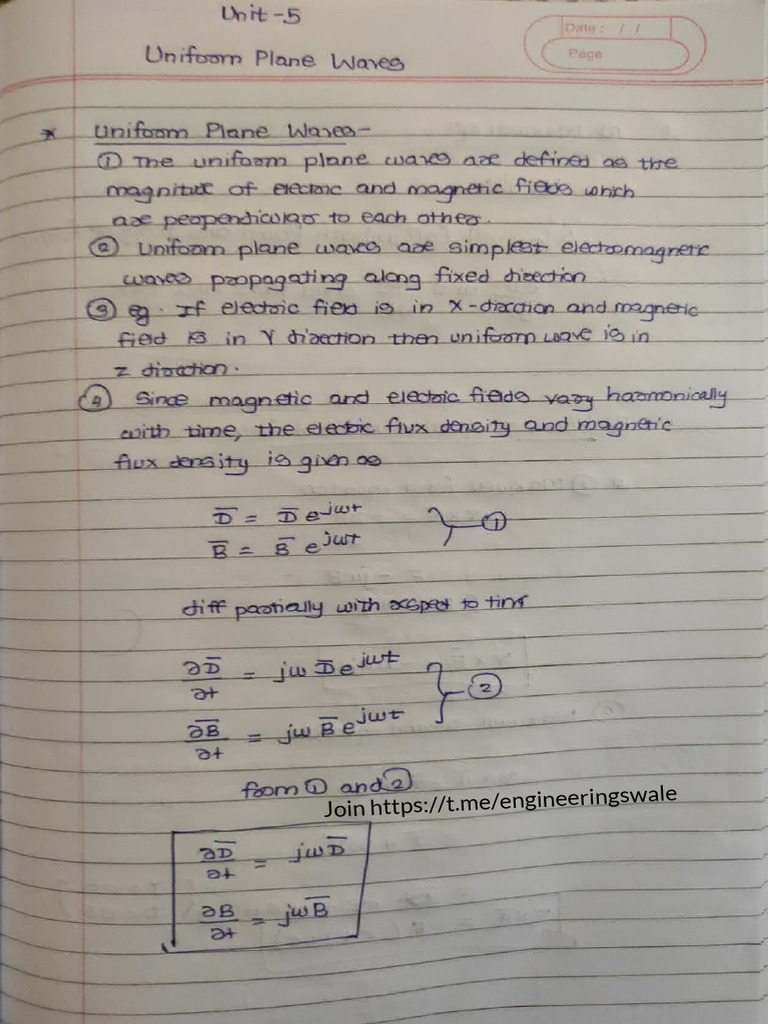 Unit -5
Date : / /
Page
Uniform Plane Waves
* Uniform Plane Waves-
① The uniform plane waves are defined as the
magnitude of electric and magnetic fields which
are perpendicular to each other.
② Uniform plane waves are simplest electromagnetic
waves propagating along fixed direction
③ eg. If electric field is in X-direction and magnetic
field is in Y direction then uniform wave is in
z direction.
④ Since magnetic and electric fields vary harmonically
with time, the electric flux density and magnetic
flux density is given as
D̅ = D̅ e^jωt
B̅ = B̅ e^jωt } ①
diff partially with respect to time
∂D̅/∂t = jω D̅ e^jωt
∂B̅/∂t = jω B̅ e^jωt } ②
from ① and ②
Join https://t.me/engineeringswale
∂D̅/∂t = jωD̅
∂B/∂t = jωB̅